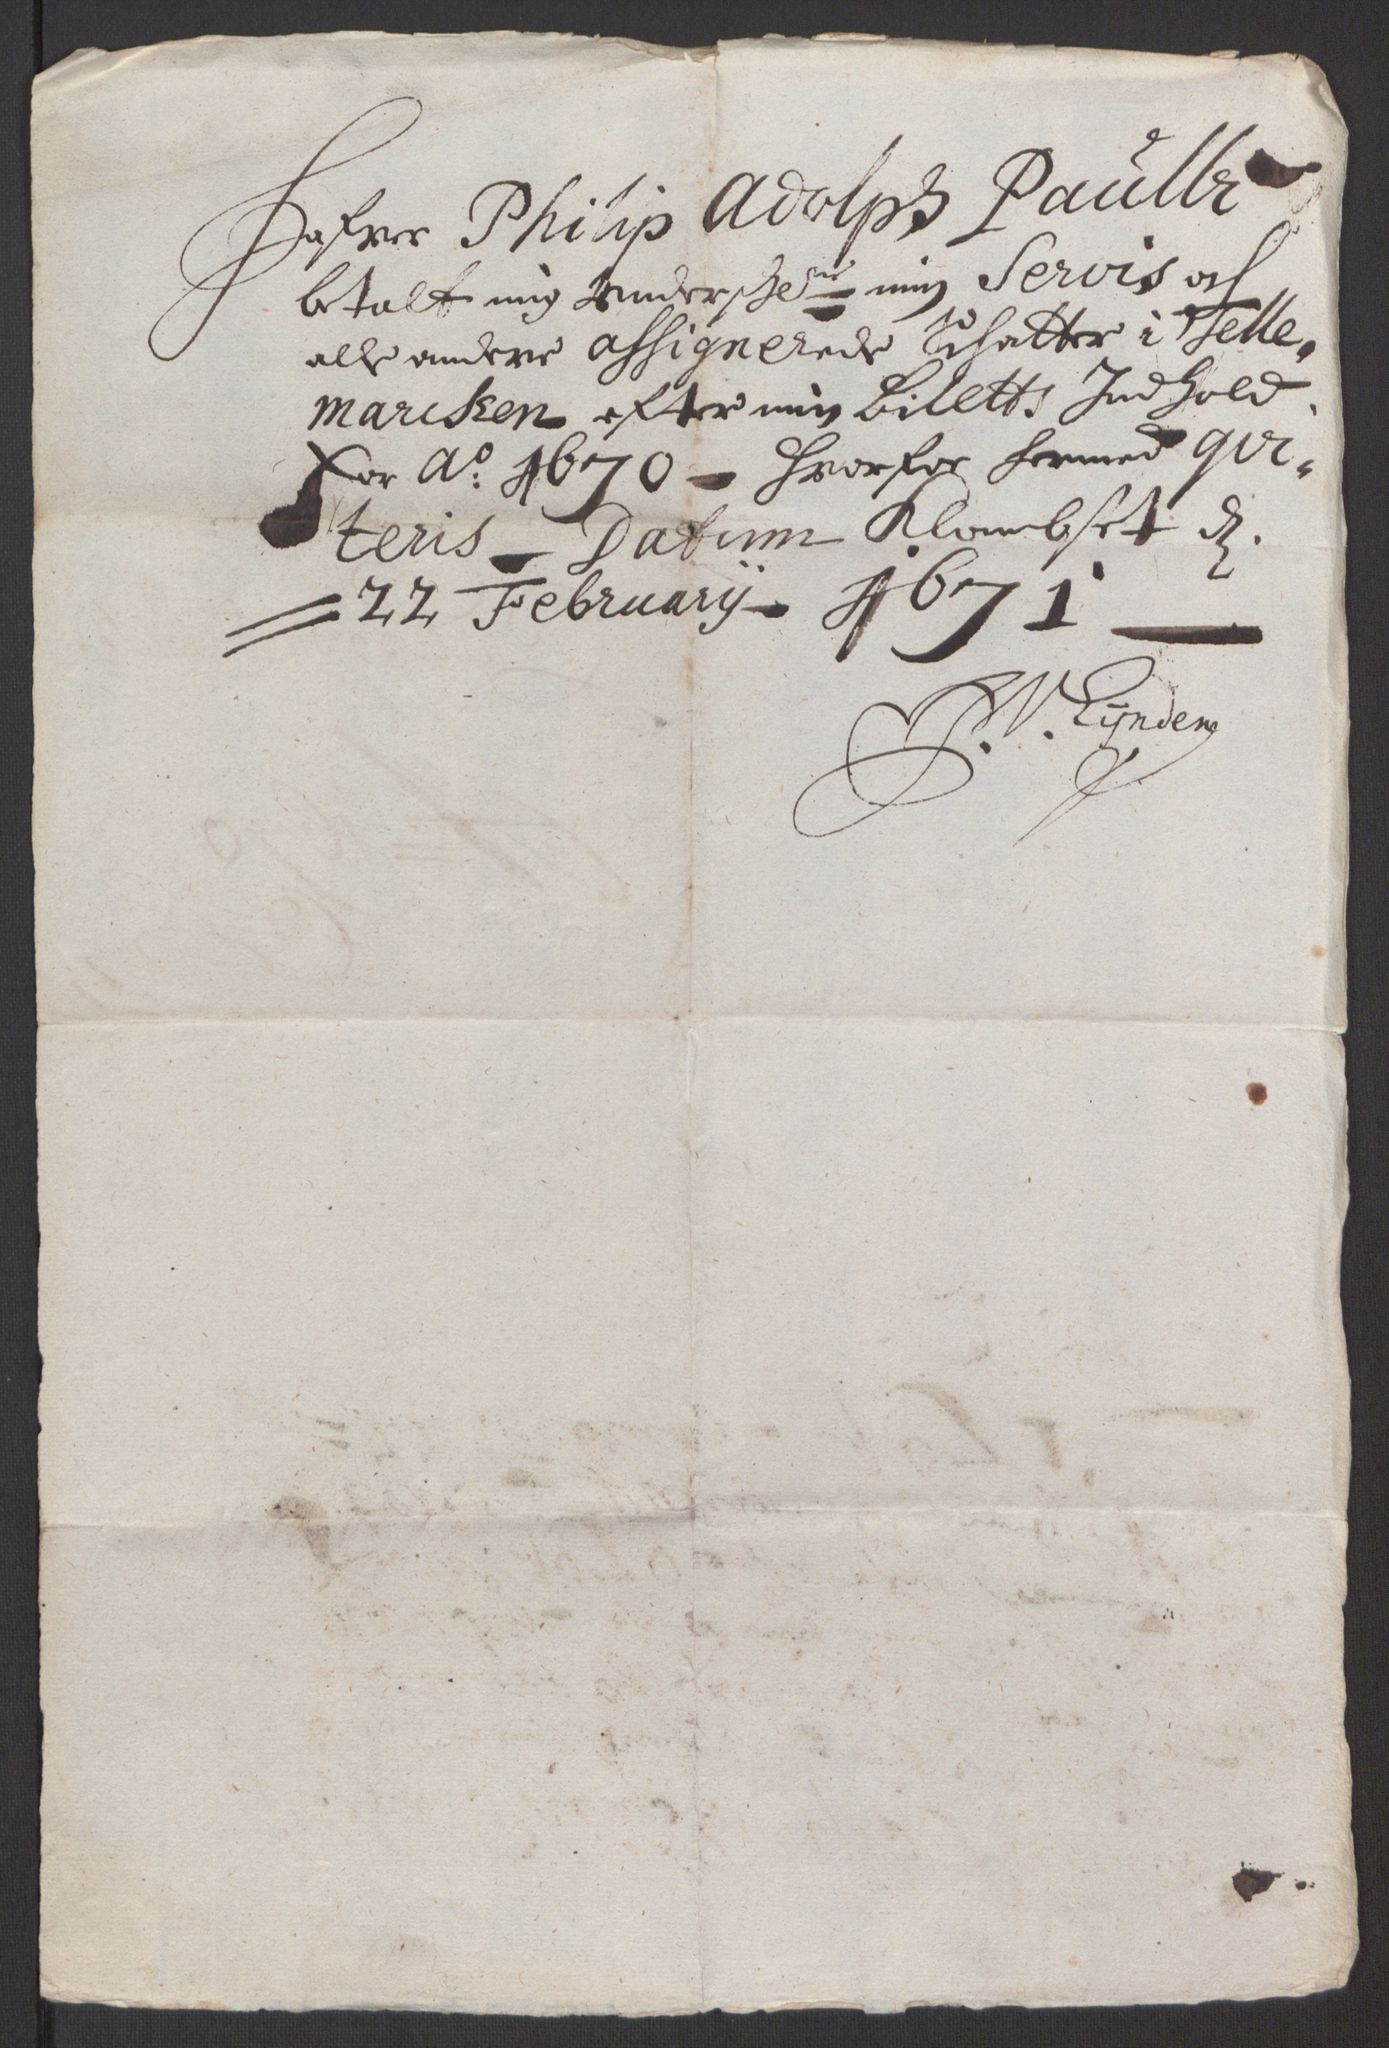 Hafver Philip Adolph Paulli
betalt mig underschrne min Servis och
alle andere assignerede Schatter i Telle-
marcken efter min Biletts Indhold
for Ao: 1670 – Hvorfor hermed qvi-
teris – Datum Klambset d.
22 Februarij 1671
V. Lÿnden